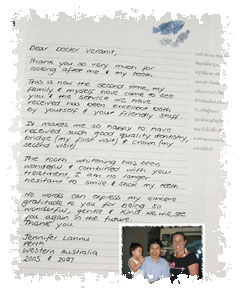 Dear Doctor Veranit,
Thank you so very much for
looking after me & my teeth.
This is now the second time, my
family & myself have come to see
you & the service we have
received has been excellent both
by yourself & your friendly staff.
It makes me so happy to have
received such good quality dentistry,
bridge (my first visit) & crown (my
second visit).
The tooth whitening has been
wonderful & combined with your
treatment, I am no longer
hesitant to smile & show my teeth
No words can express my sincere
gratitude to you for being so
wonderful, gentle & kind. We will see
you again in the future.
Thank you
Jennifer Lannu
Perth
Western Australia
2005 & 2007